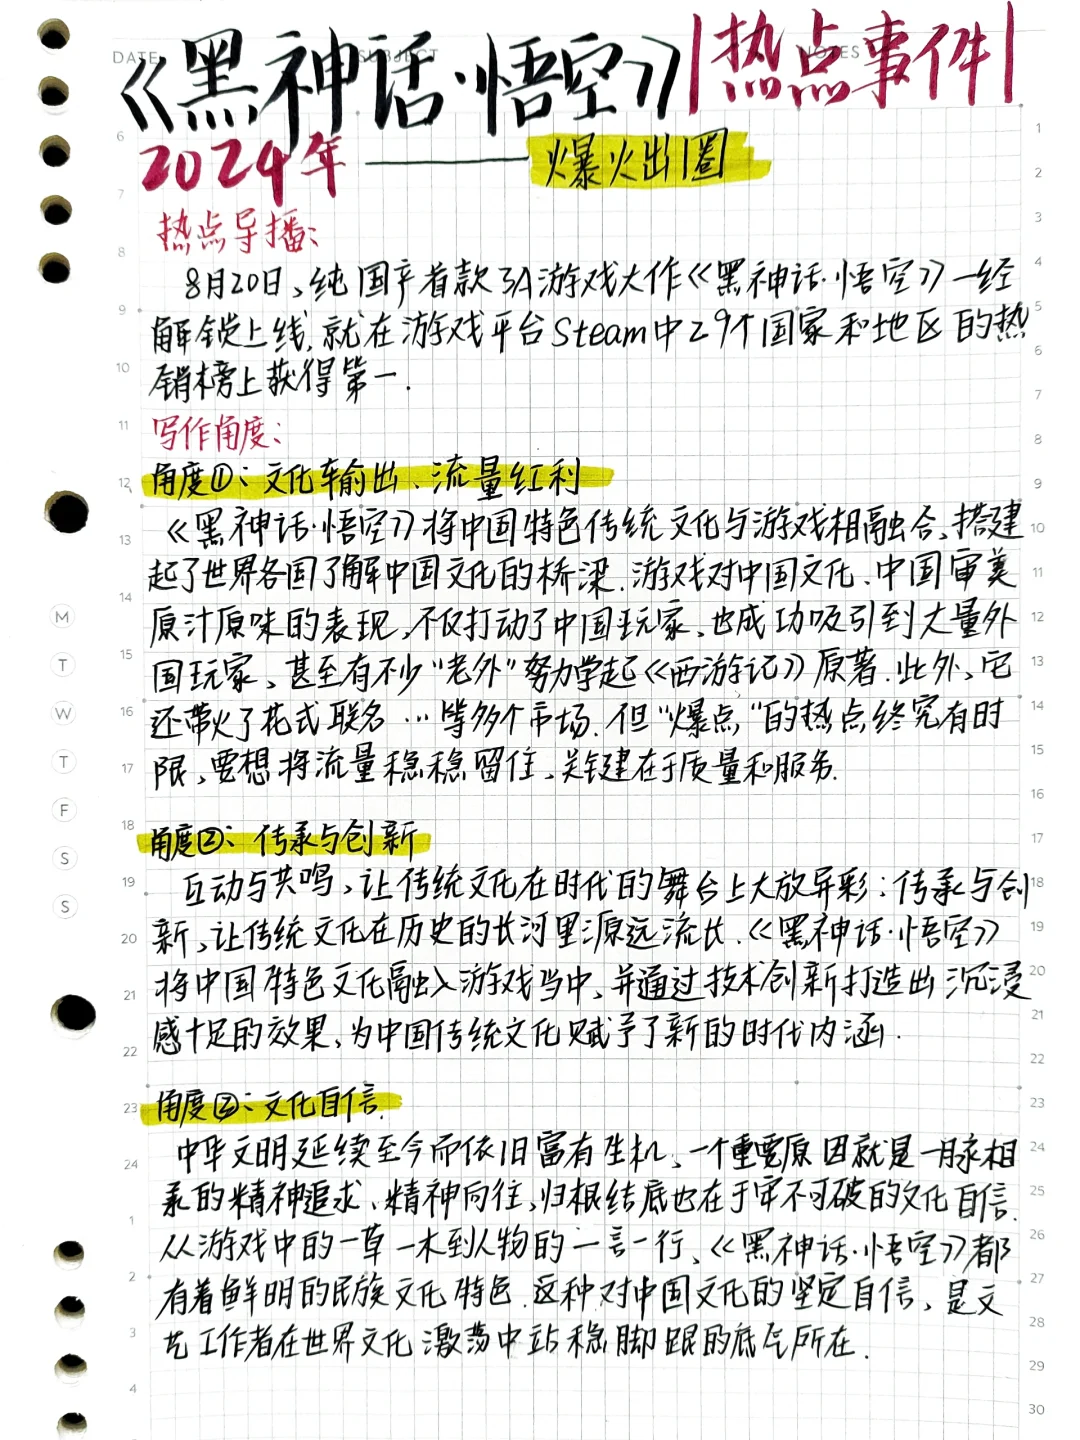 DATE SUBJECT NOTES
《黑神话·悟空》|热点事件|
2024年——爆火出圈
热点导播:
8月20日、纯国产首款3A游戏大作《黑神话·悟空》一经
解锁上线,就在游戏平台Steam中29个国家和地区的热
销榜上获得第一.
写作角度:
角度①:文化输出、流量红利
《黑神话·悟空》将中国特色传统文化与游戏相融合、搭建
起了世界各国了解中国文化的桥梁.游戏对中国文化、中国审美
原汁原味的表现,不仅打动了中国玩家、也成功吸引到大量外
国玩家、甚至有不少"老外"努力学起《西游记》原著.此外、它
还带火了花式联名…等多个市场.但"爆点"的热点终究有时
限、要想将流量稳稳留住、关键在于质量和服务.
角度②:传承与创新
互动与共鸣、让传统文化在时代的舞台上大放异彩;传承与创
新、让传统文化在历史的长河里源远流长.《黑神话·悟空》
将中国特色文化融入游戏当中、并通过技术创新打造出沉浸
感十足的效果、为中国传统文化赋予了新的时代内涵.
角度③:文化自信.
中华文明延续至今而依旧富有生机、一个重要原因就是一脉相
承的精神追求、精神向往,归根结底也在于牢不可破的文化自信.
从游戏中的一草一木到人物的一言一行、《黑神话·悟空》都
有着鲜明的民族文化特色.这种对中国文化的坚定自信、是文
艺工作者在世界文化激荡中站稳脚跟的底气所在.
M
T
W
T
F
S
S
6
7
8
9
10
11
12
13
14
15
16
17
18
19
20
21
22
23
24
1
2
3
4
1
2
3
4
5
6
7
8
9
10
11
12
13
14
15
16
17
18
19
20
21
22
23
24
25
26
27
28
29
30